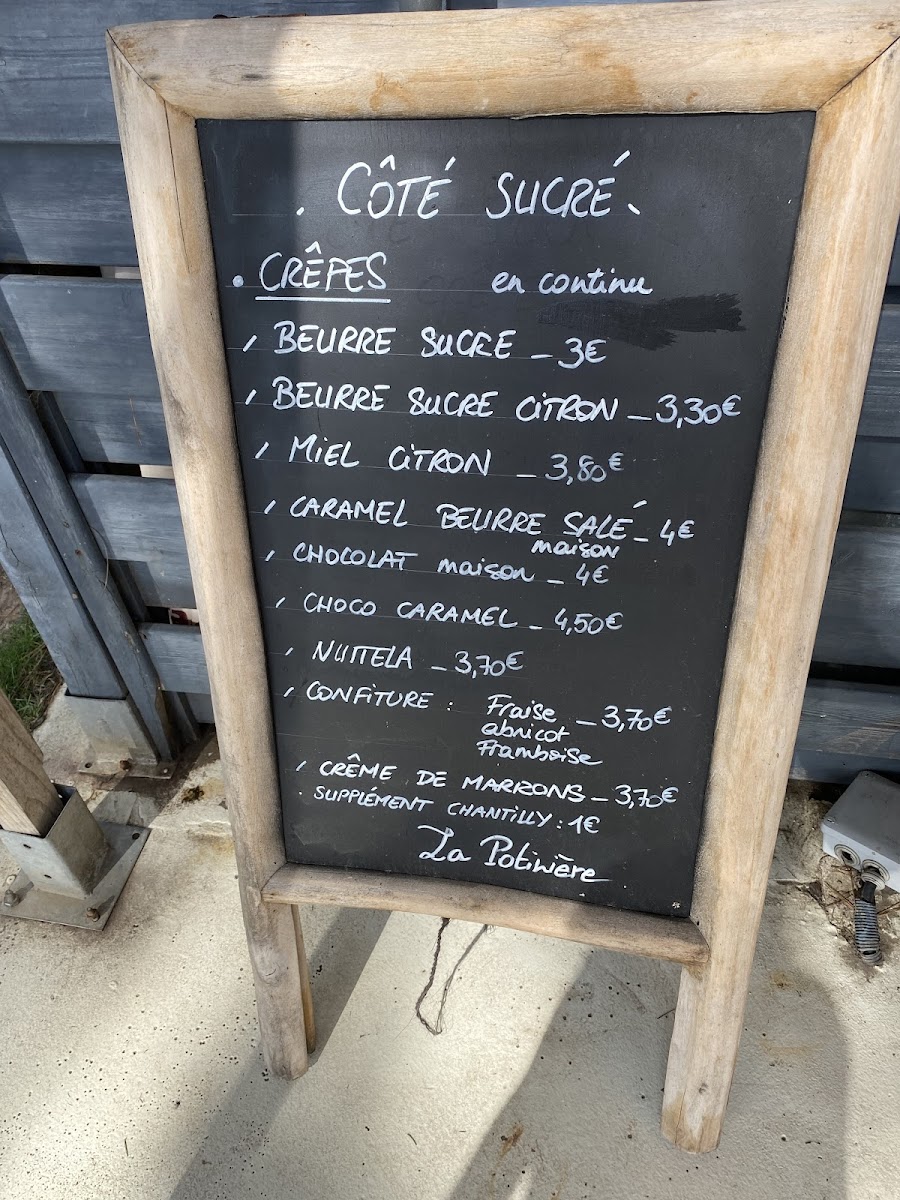 . CÔTÉ SUCRÉ.
. CRÊPES en continu
, BEURRE SUCRE - 3€
, BEURRE SUCRE CITRON - 3,30€
, MIEL CITRON - 3,80€
, CARAMEL BEURRE SALÉ - 4€
maison
, CHOCOLAT maison - 4€
, CHOCO CARAMEL - 4,50€
, NUTTELA - 3,70€
, CONFITURE : Fraise - 3,70€
abricot
Framboise
, CRÊME DE MARRONS - 3,70€
. SUPPLÉMENT CHANTILLY : 1€
La Potinière